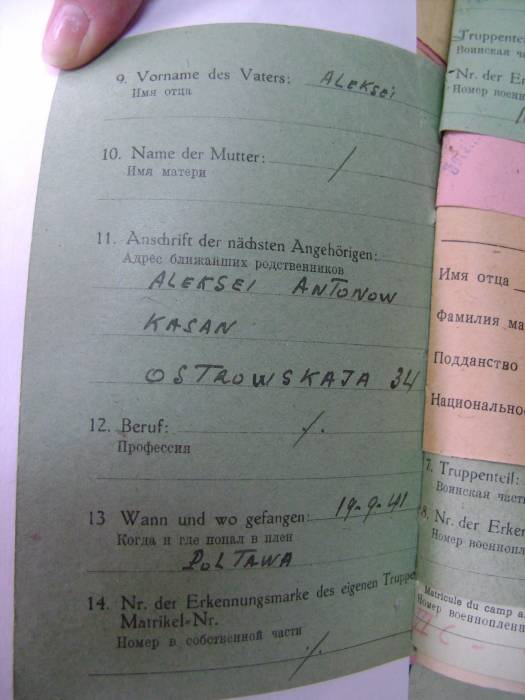 9. Vorname des Vaters: ALEKSEI
Имя отца
10. Name der Mutter: /
Имя матери
11. Anschrift der nächsten Angehörigen:
Адрес ближайших родственников
ALEKSEI ANTONOW
KASAN
OSTROWSKAJA 34
12. Beruf: ./.
Профессия
13 Wann und wo gefangen: 19.9.41
Когда и где попал в плен
POLTAWA
14. Nr. der Erkennungsmarke des eigenen Truppe
Matrikel-Nr.
Номер в собственной части
./.
Truppenteil
Воинская ча
Nr. der Er
Номер воен
Имя отца
Фамилия ма
Подданство
Национально
7. Truppenteil:
Воинская част
8. Nr. der Erken
Номер военнопл
Matricule du camp a
Номер военноплен